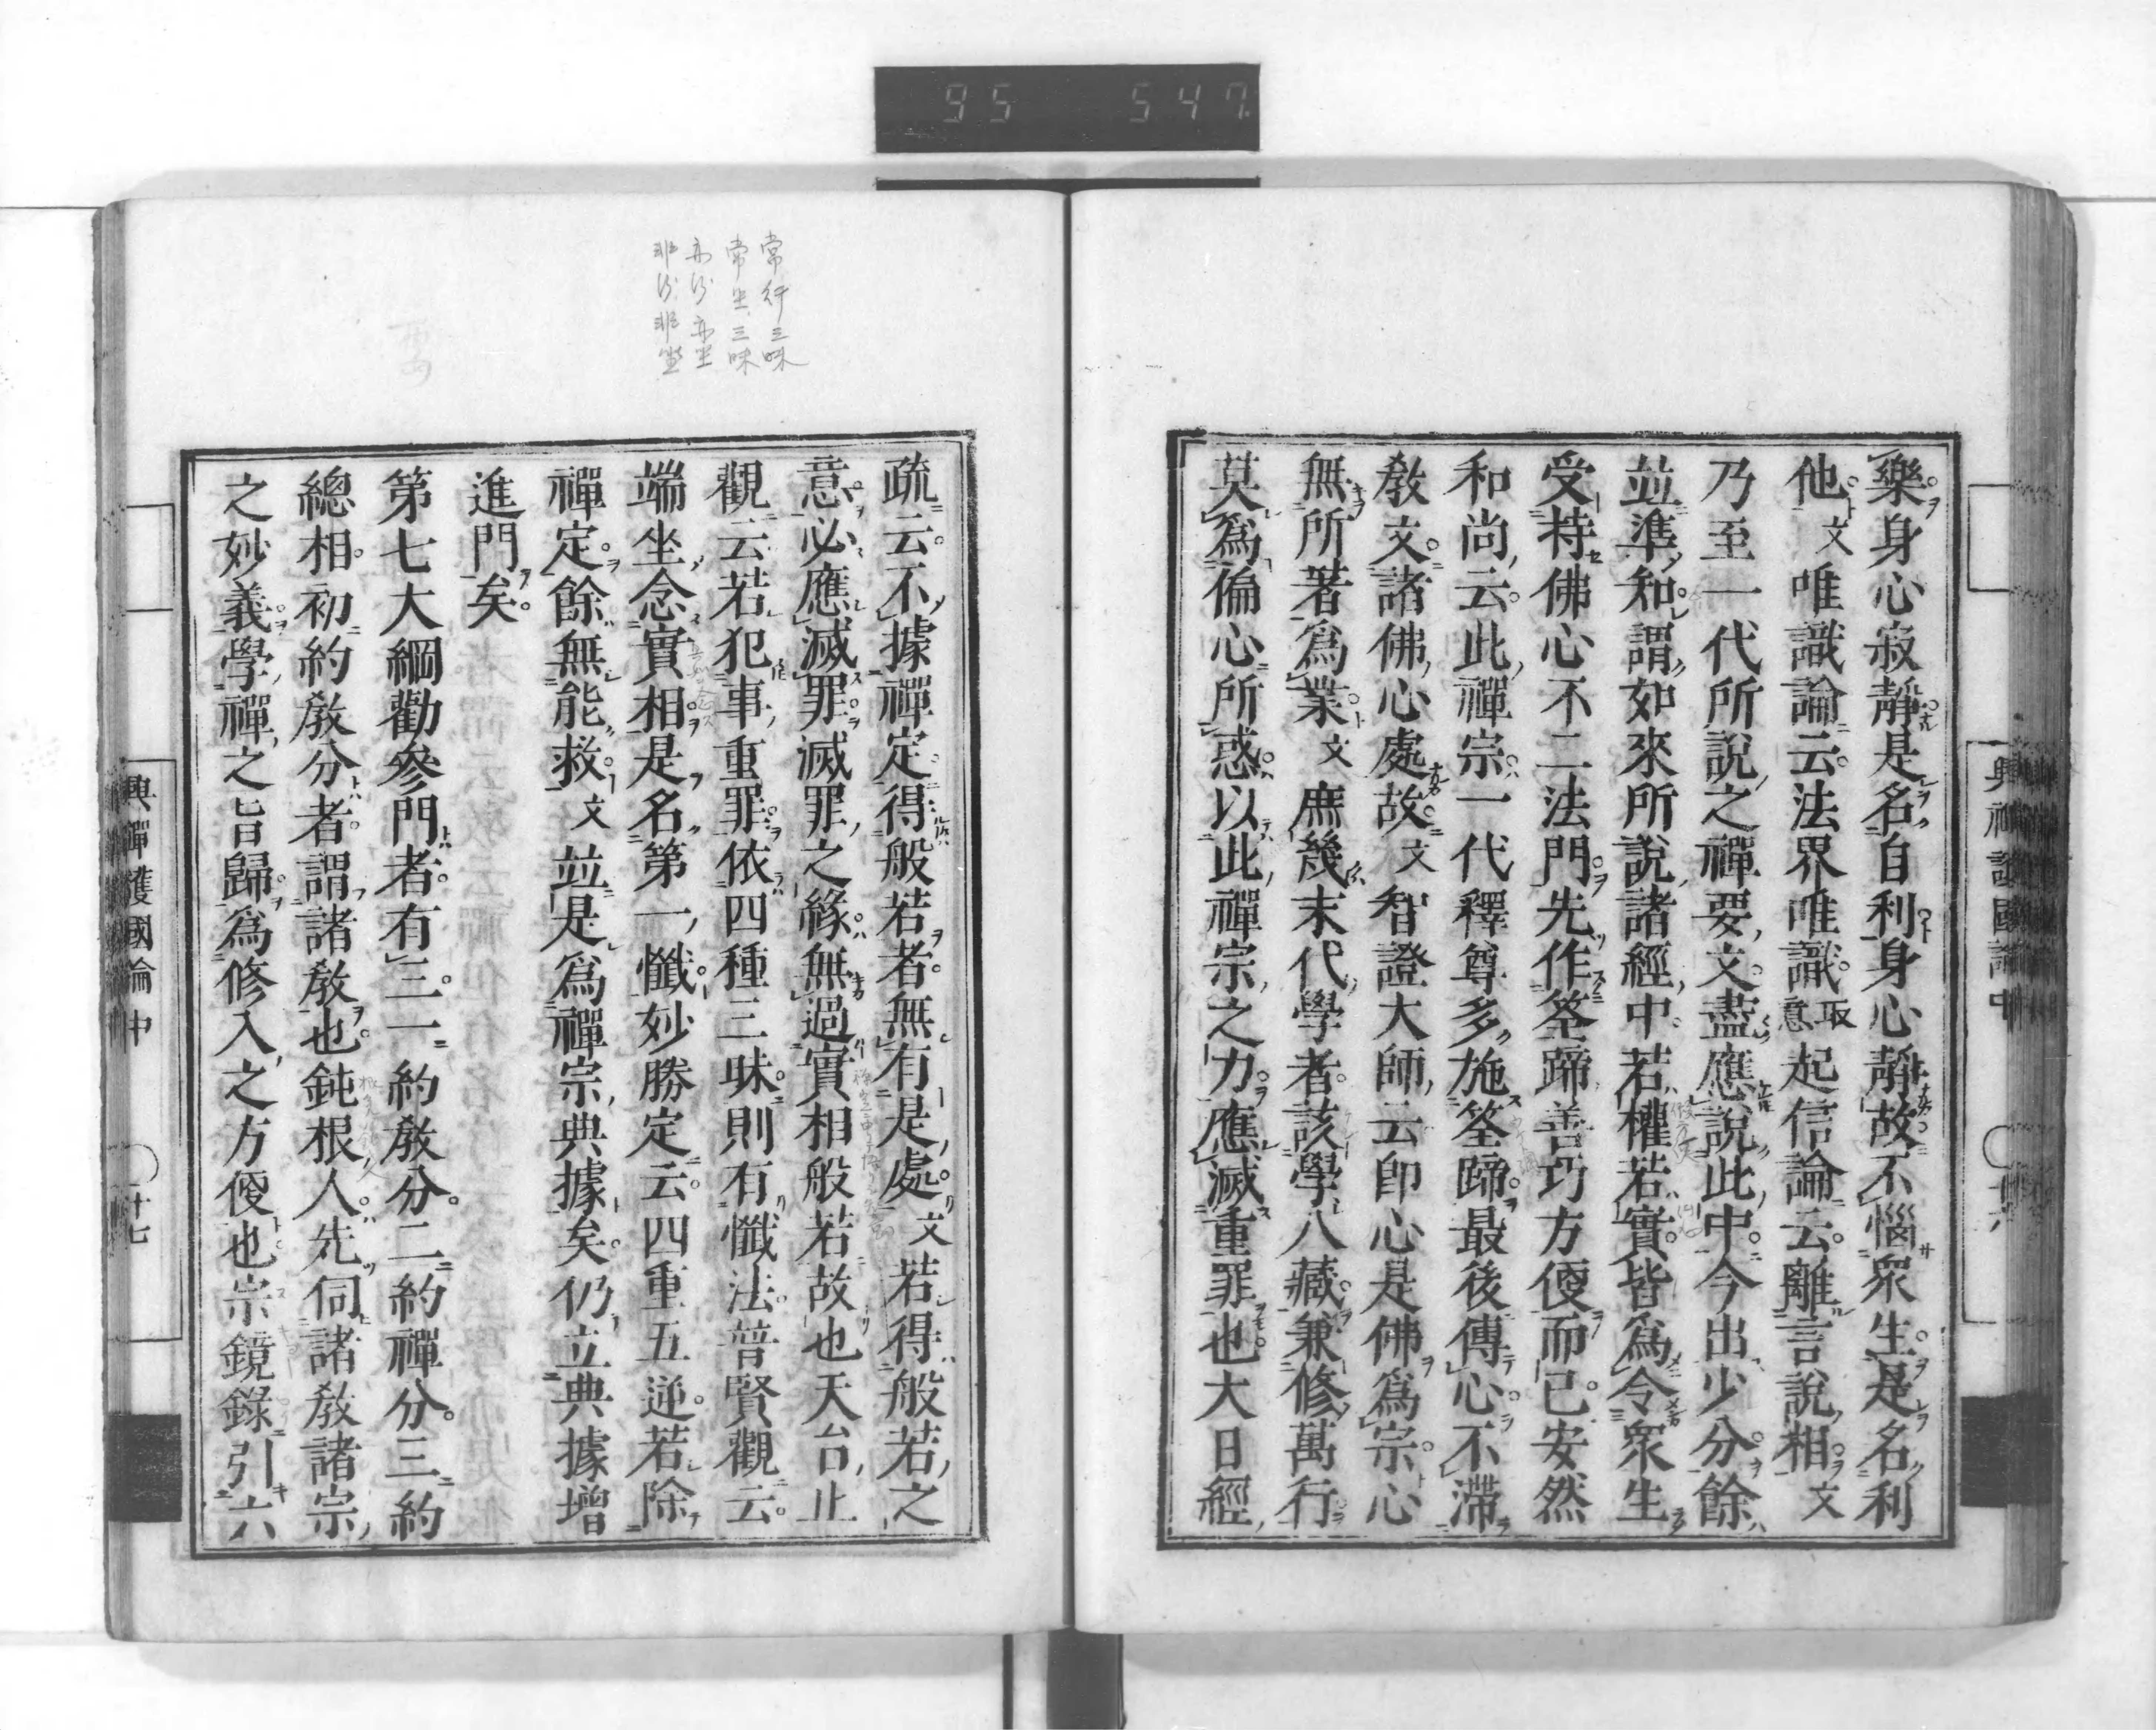 95 547.
樂身心寂靜是名自利身心靜故不惱衆生是名利
他文唯識論云法界唯識取意起信論云離言說相文
乃至一代所說之禪要文盡應說此中今出少分餘
並準知謂如來所說諸經中若權若實皆爲令衆生
受持佛心不二法門先作筌蹄善巧方便而已安然
和尚云此禪宗一代釋尊多施筌蹄最後傳心不滯
教文諸佛心處故文智證大師云即心是佛爲宗心
無所著爲業文庶幾末代學者該學八藏兼修萬行
莫爲偏心所惑以此禪宗之力應滅重罪也大日經
興禪護國論中
常行三昧
常坐三昧
亦行亦坐
非行非坐
疏云不據禪定得般若者無有是處文若得般若之
意必應滅罪滅罪之緣無過實相般若故也天台止
觀云若犯事重罪依四種三昧則有懺法普賢觀云
端坐念實相是名第一懺妙勝定云四重五逆若除
禪定餘無能救文並是爲禪宗典據矣仍立典據增
進門矣
第七大綱勸參門者有三一約教分二約禪分三約
總相初約教分者謂諸教也鈍根人先伺諸教諸宗
之妙義學禪之旨歸爲修入之方便也宗鏡錄引六
興禪護國論中 十七